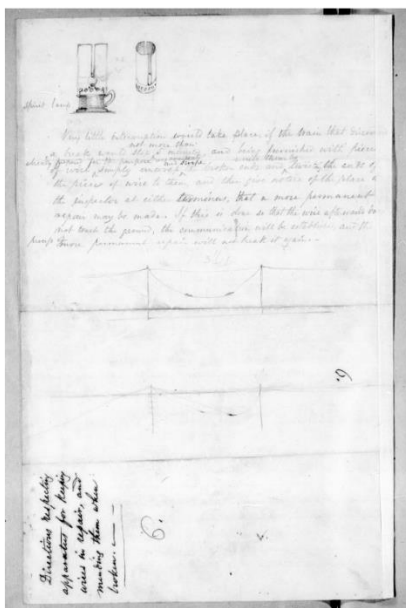 Spirit lamp
Very little interruption would take place, if the train that discovers
not more than
a break would stop a minute, and being furnished with pieces
already
of wire, simply the broken ends and the ends of
the pieces of wire to them, and then give notice of the place to
the inspector at either terminus, that a more permanent
repair may be made. If this is done so that the wire afterwards do
not touch the ground, the communication will be established, and the
more permanent repair will not break it again.
6.
6.
Directions respecting
apparatus for keeping
wires in repair, and
mending them when
broken.